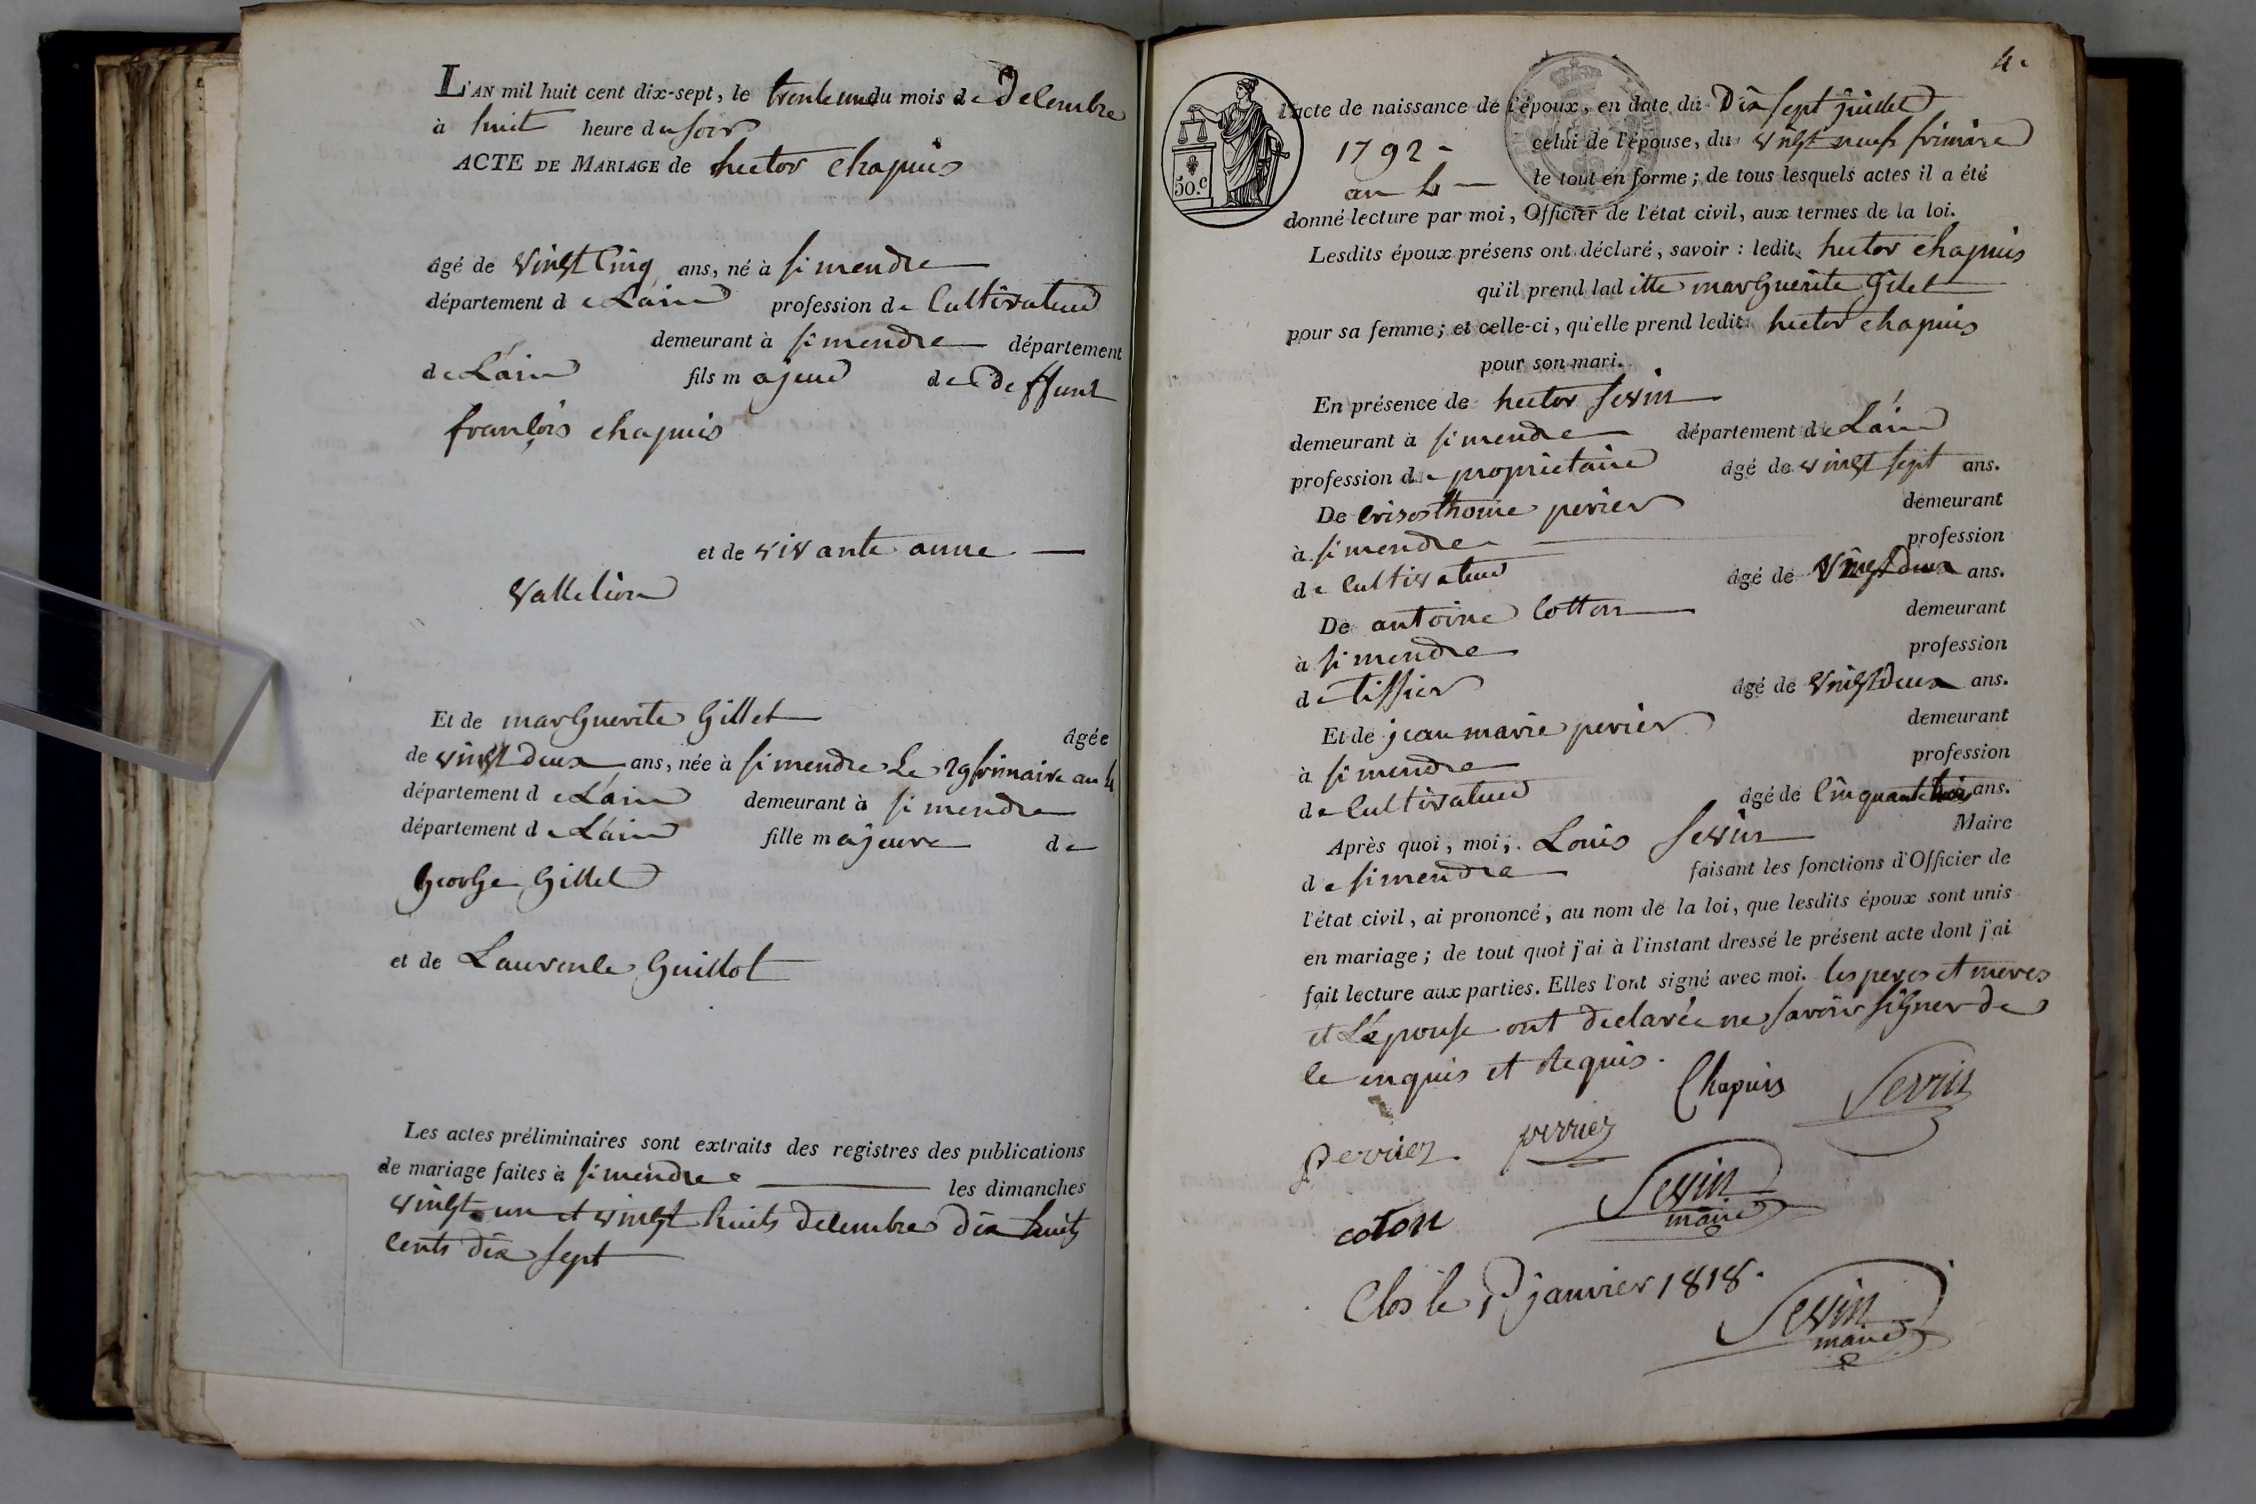 L'AN mil huit cent dix-sept, le trente un du mois de decembre
à huit heure du soir
ACTE DE MARIAGE de hector Chapuis
âgé de vingt cinq ans, né à simendre
département de L'ain profession de Cultivateur
demeurant à simendre département
de L'ain fils majeur de deffunt
françois chapuis
et de vivante anne
Vallelion
Et de marguerite Gillet
âgée
de vingt deux ans, née à simendre Le 29 frimaire an 4
département de L'ain demeurant à simendre
département de L'ain fille majeure de
George Gillet
et de Laurence Guillot
Les actes préliminaires sont extraits des registres des publications
de mariage faites à simendre les dimanches
vingt un et vingt huits decembre dix huits
cents dix sept
4.
l'acte de naissance de l'époux, en date du Dix sept juillet
1792 - celui de l'épouse, du vingt neuf frimaire
an 4 - le tout en forme; de tous lesquels actes il a été
50.c
donné lecture par moi, Officier de l'état civil, aux termes de la loi.
Lesdits époux présens ont déclaré, savoir : ledit hector chapuis
qu'il prend laditte marguerite Gilet
pour sa femme; et celle-ci, qu'elle prend ledit hector chapuis
pour son mari.
En présence de hector Sevin
demeurant à simendre département de L'ain
profession de proprietaire âgé de vingt sept ans.
De crisosthome perier demeurant
à simendre profession
de Cultivateur âgé de vingt deux ans.
De antoine Cotton demeurant
à simendre profession
de tissier âgé de vingt deux ans.
Et de jean marie perier demeurant
à simendre profession
de Cultivateur âgé de Cinquante trois ans.
Après quoi, moi, Louis Sevin Maire
de simendre faisant les fonctions d'Officier de
l'état civil, ai prononcé, au nom de la loi, que lesdits époux sont unis
en mariage; de tout quoi j'ai à l'instant dressé le présent acte dont j'ai
fait lecture aux parties. Elles l'ont signé avec moi. les peres et meres
et L'épouse ont declarée ne savoir signer de
ce enquis et Requis.
Chapuis Sevin
perrier perrier
Sevin
maire
coton
Clos le 1er janvier 1818.
Sevin
maire